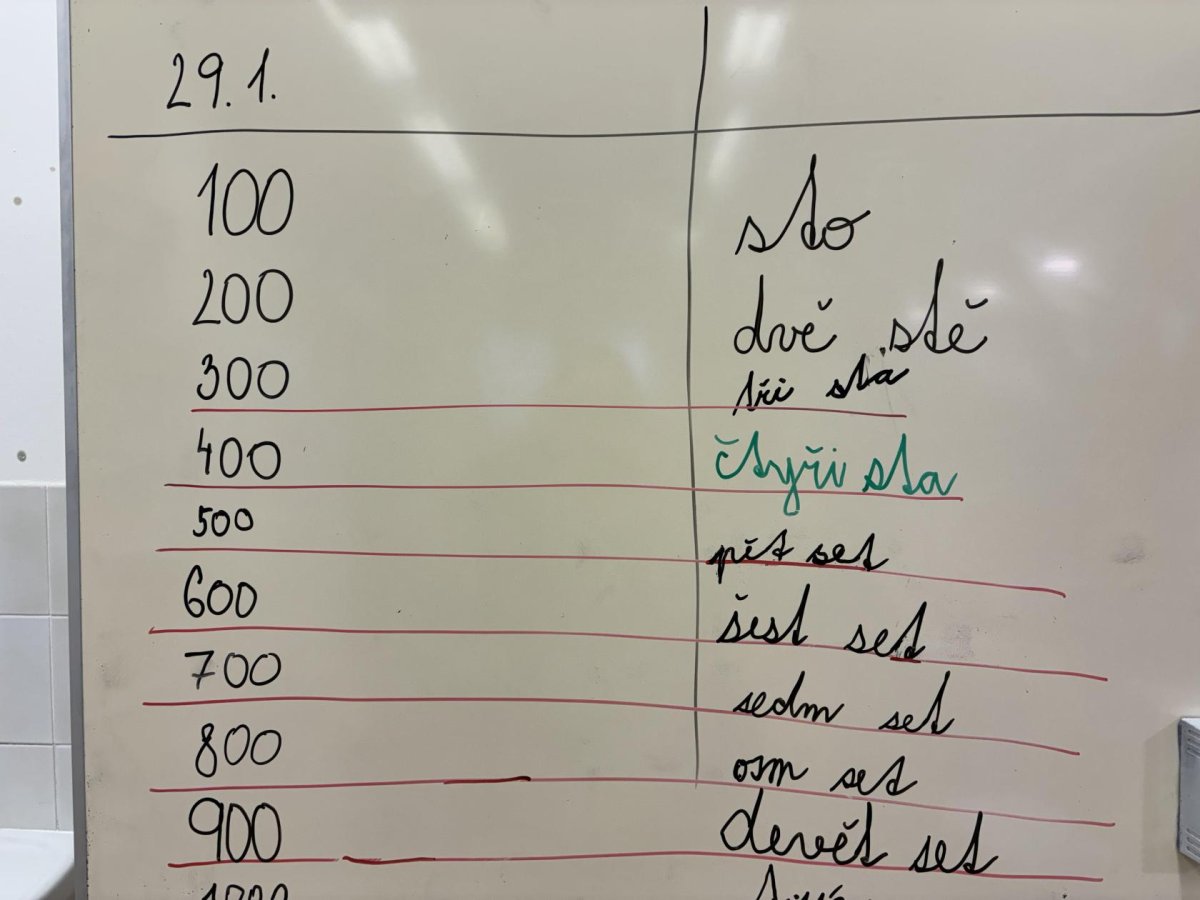 29. 1.
100 sto
200 dvě stě
300 tři sta
400 čtyři sta
500 pět set
600 šest set
700 sedm set
800 osm set
900 devět set
1000